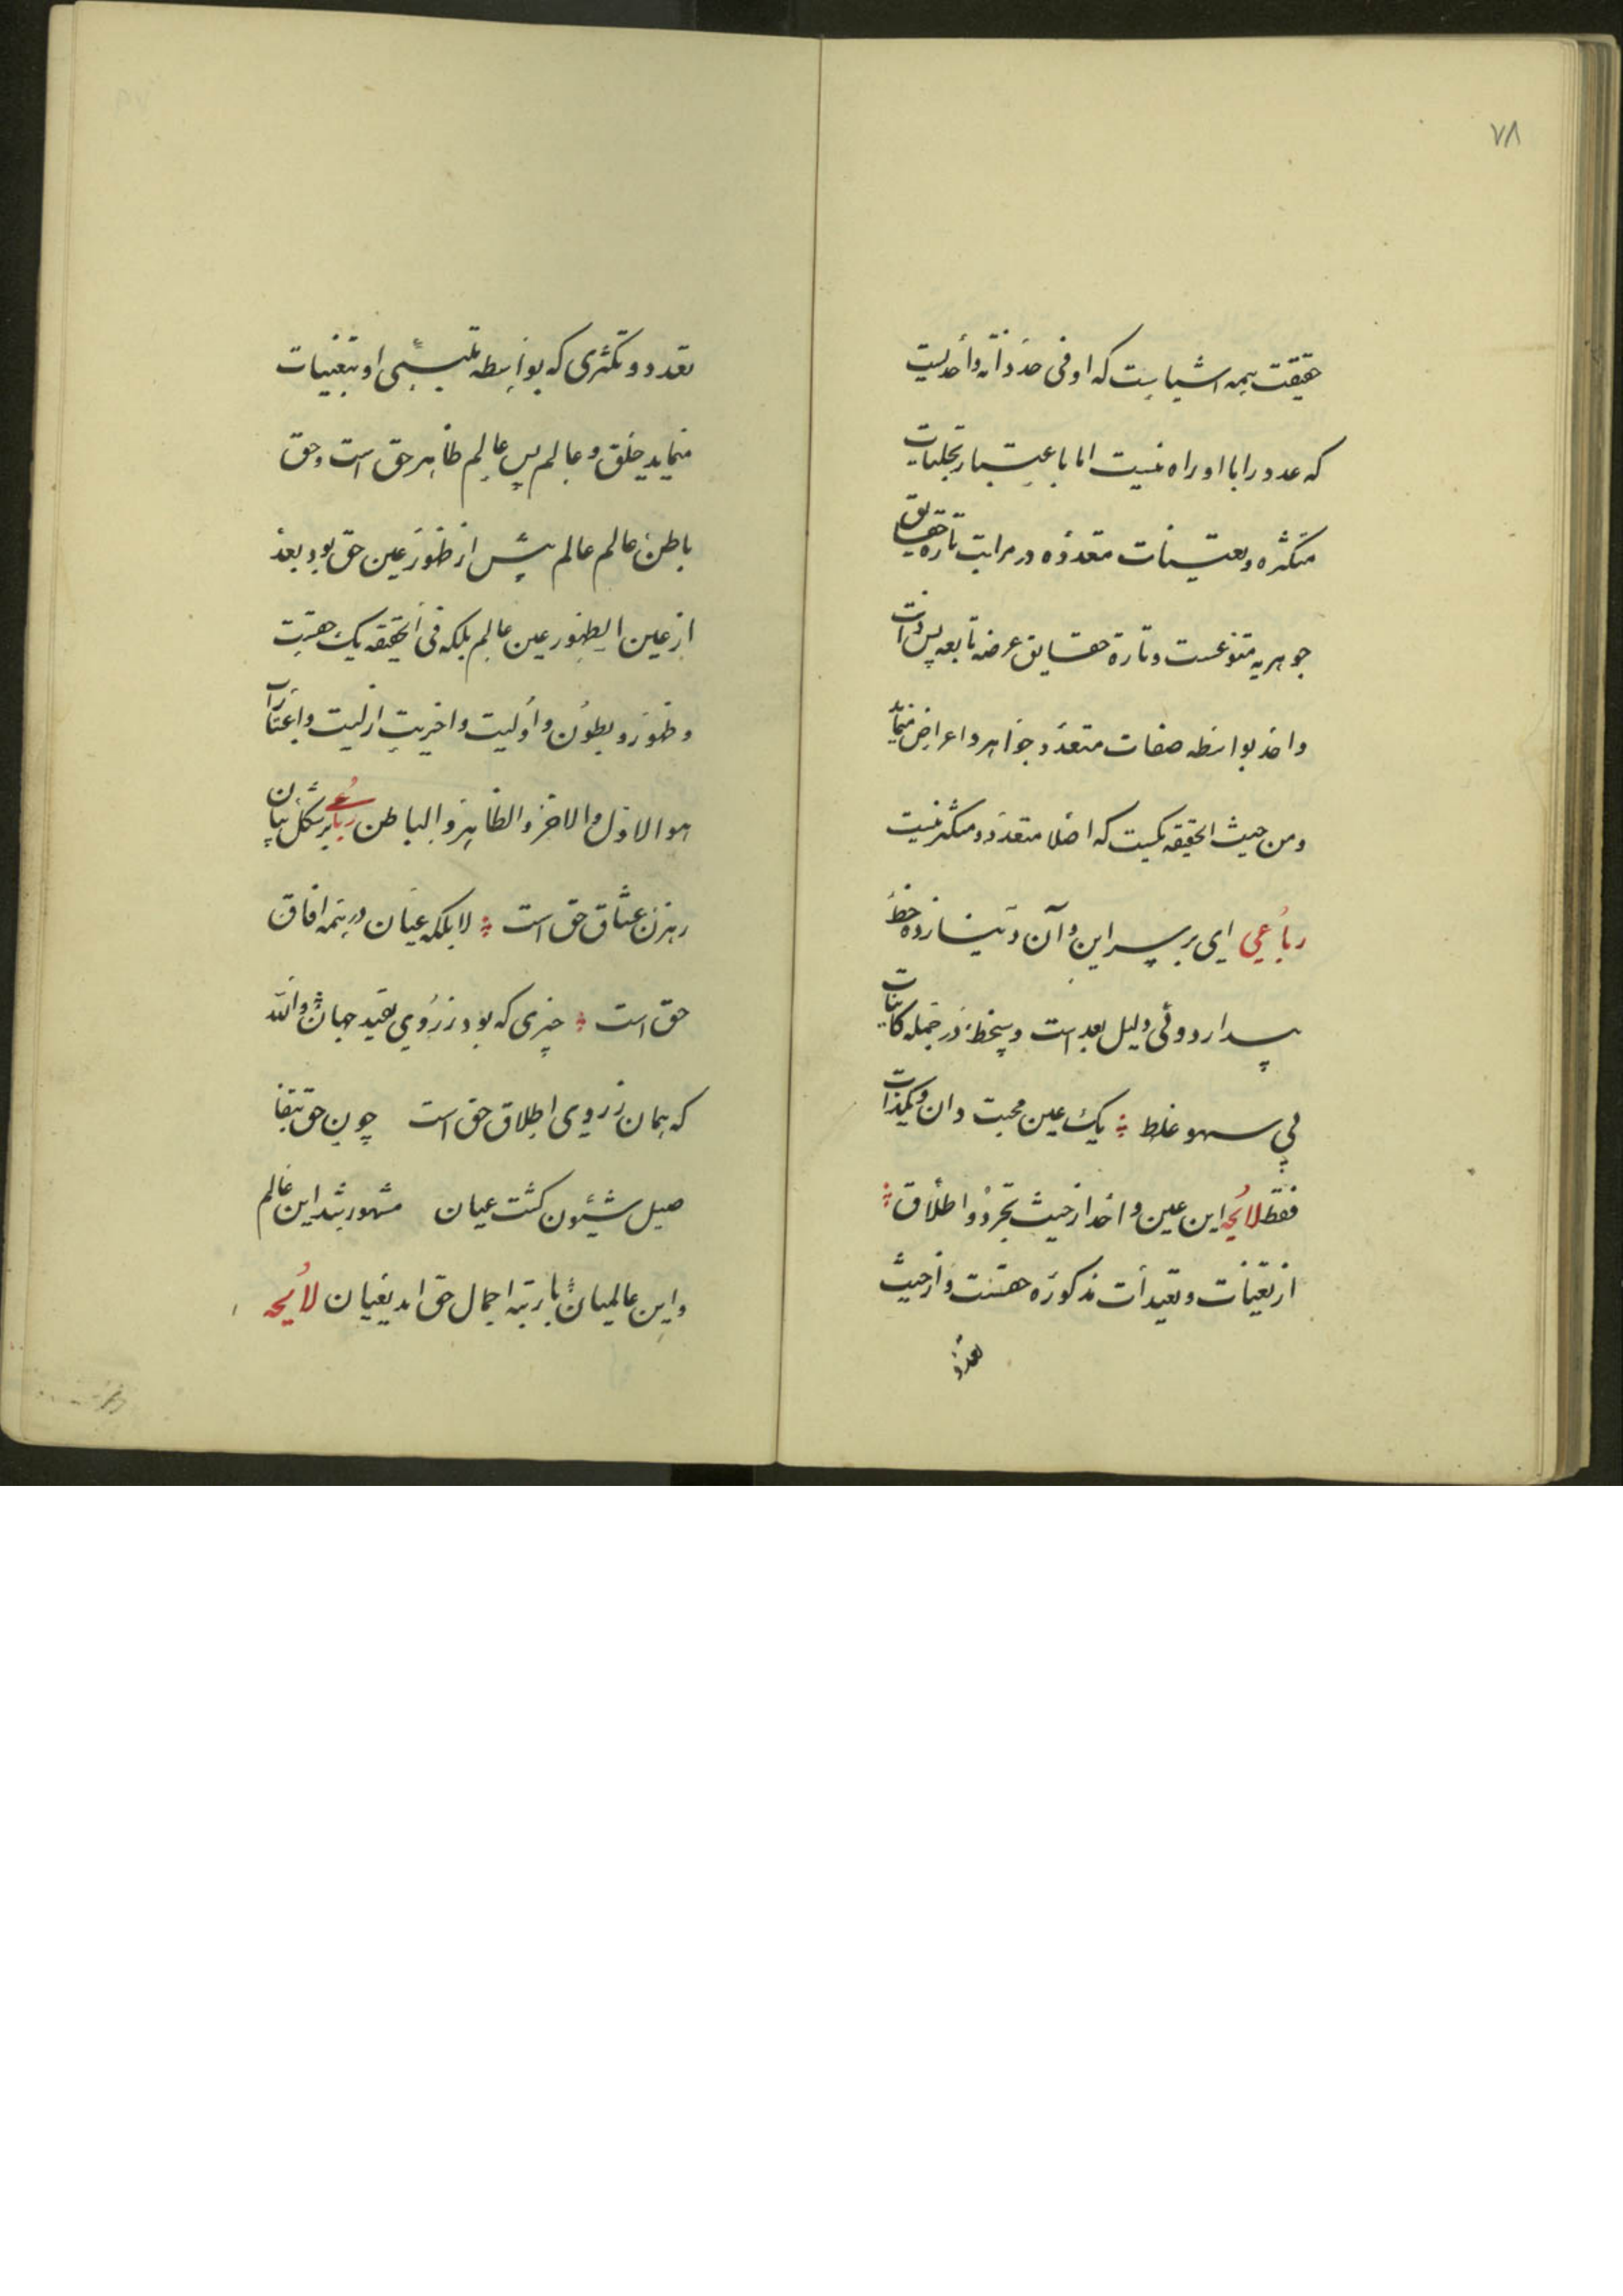 ٧٨
حقیقت همه اشیاست که او فی حد ذاته واحدیست
که عدد را با او راه نیست اما باعتبار تجلیات
متکثره وتعینات متعدده در مراتب تاره حقایق
جوهریه متنوعست وتارة حقایق عرضه تابعه پس ذات
واحد بواسطه صفات متعدد جواهر و اعراض مینماید
ومن حیث الحقیقه یکیست که اصلا متعدد ومتکثر نیست
رباعی ای بر سر این وآن دنینا زده خط
پندار دوئی دلیل بعد است وسخط در جمله کاینات
بی سهو غلط یک عین محبت دان ویکذات
فقط لایحه این عین واحد از حیث تجرد و اطلاق
از تعینات وتقیدات مذکوره حقست واز حیث
تعدد
تعدد و تکثری که بواسطه تلبسی او بتعینات
مینماید خلق و عالم پس عالم ظاهر حق است وحق
باطن عالم عالم پیش از ظهور عین حق بود بعد
از عین الظهور عین عالم بلکه فی الحقیقه یک حقیت
وظهور و بطون واولیت واخریت ازلیت واعتبارات
هو الاول والاخر والظاهر والباطن رباعی بر شکل بتان
رهزن عشاق حق است لا بلکه عیان در همه افاق
حق است چیزی که بود ز روی تقید جهان والله
که همان ز روی اطلاق حق است چون حق بتفا
صیل شیئون کشت عیان مشهور شد این عالم
واین عالمیان با رتبه اجمال حق اید بعیان لایحه